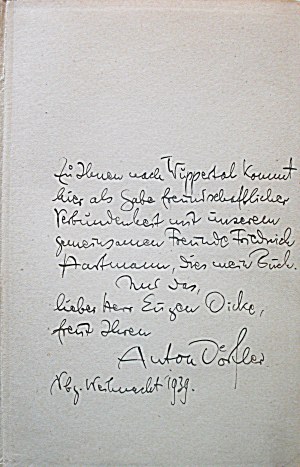 Zu Ihnen nach Wuppertal kommt
hier als Gabe freundschaftlicher
Verbundenheit mit unserem
gemeinsamen Freunde Friedrich
Hartmann, dies mein Buch.
Und das,
lieber Herr Eugen Dicke,
freut Ihren
Anton Dörfler
Nbg. Weihnacht 1939.